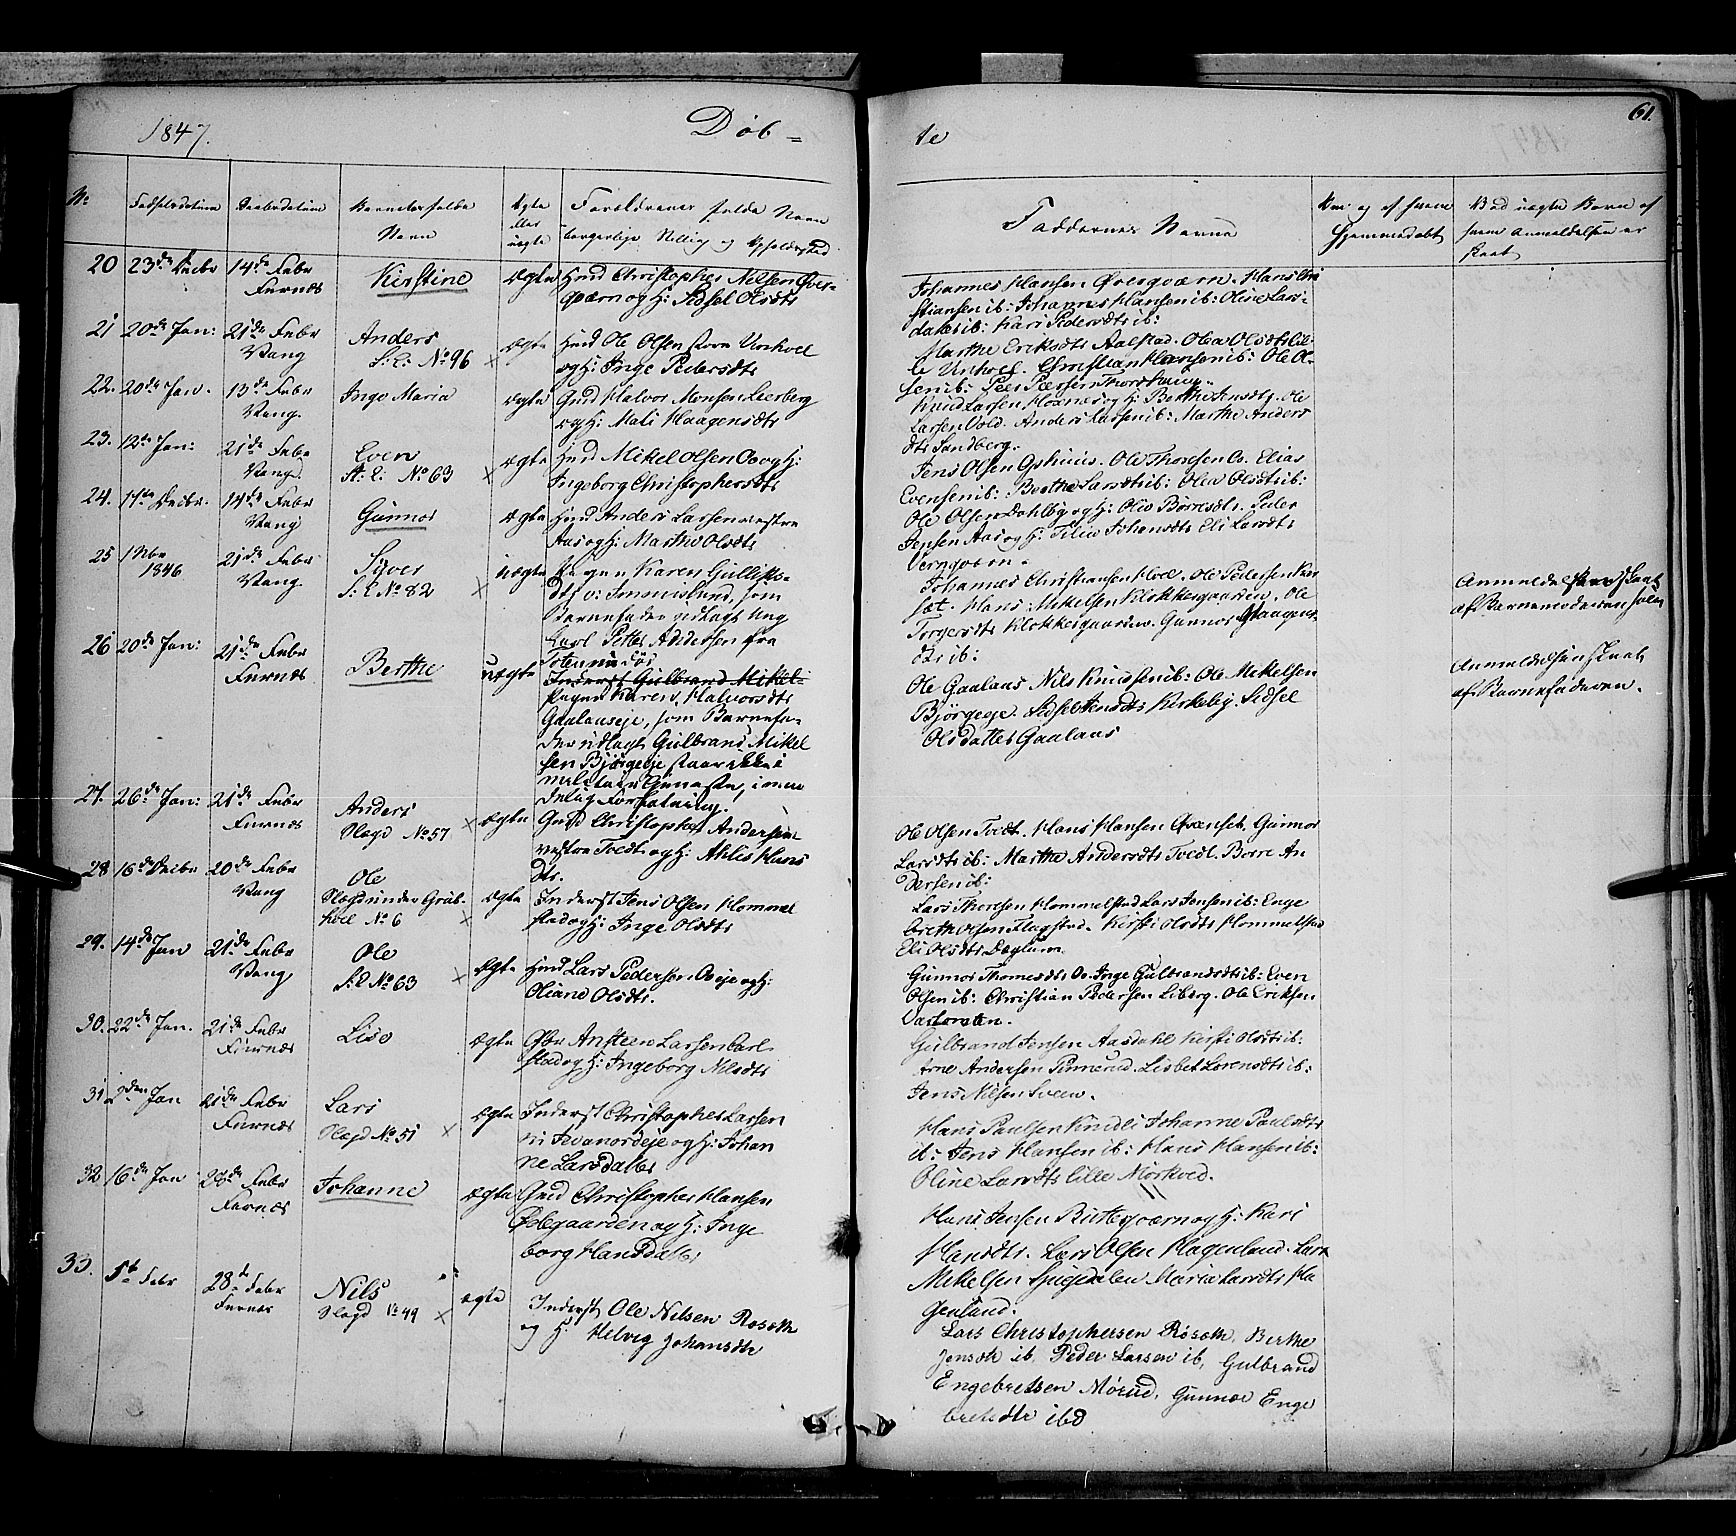 1847.
Døb=
te
61.
No
Fødselsdatum
Daabsdatum
Barnets fulde
Navn
Ægte
eller
uægte
Forældrenes fulde Navn
borgerlige Stilling og Opholdssted
Faddernes Navne
Hvo og af hvem
hjemmedøbt
Ved uægte Børn af
hvem Anmeldelsen er
skeet
20 23de Decbr 14de Febr
Furnæs
Kirstine
ægte Huusmd Christopher Nilsen Øver-
qværn og H: Sidsel Olsdtr
Johannes Hansen Øverqværn. Hans Chri
stiansen ib: Johannes Hansen ib: Oline Lars-
datter ib: Kari Pedersdtr ib:
21 20de Jan: 21de Febr
Vang
Anders
S: L: No 96 x
ægte Huusmd Ole Olsen store Urehvel
og H: Inge Pedersdtr
Marthe Eriksdtr Aalstad. Olea Olsdtr lil-
le Urehvel. Christian Hansen ib: Ole Ol-
sen ib: Peer Pedersen Thorshaug.
22. 20de Jan. 13de Febr
Vang.
Inger Maria
ægte Gmd Halvor Monsen Leerberg
og H: Mali Haagensdtr
Knud Larsen Hoanes og H: Berthe Jensdtr. Ole
Larsen Vold. Anders Larsen ib: Marthe Anders
dtr Sandberg.
23. 12te Jan: 21de Febr
Vang.
Even
St: L: No 63 x
ægte Huusmd Mikel Olsen Oo og H:
Ingeborg Christophersdtr
Jens Olsen Ophuus. Ole Thoresen Oo. Elias
Evensen ib: Berthe Larsdtr ib: Olea Olsdtr ib:
24. 17de Decbr. 14de Febr
Vang
Gunnor
ægte Huusmd Anders Larsen vestre
Aas og H: Marthe Olsdtr
Ole Olsen Dahlby og H: Olea Børresdtr. Peder
Jensen Aas og H: Eline Johansdtr Eli Larsdtr
Bergqværn.
25 1 Nbr
1846 21de Febr
Vang.
Syver
S: L No 82 x
uægte Pigen Karen Gulliks-
dtr v: Immerslund, som
Barnefader udlagt Ung
karl Petter Andersen fra
Toten
Johannes Christiansen Hoel. Ole Pedersen Kær
sæt. Hans Mikelsen Klokkergaarden. Ole
Torgersdtr Klokkergaarden. Gunnor Haagens
dtr ib:
Anmeldelsen skeet
af Barnemoderen selv
26 20de Jan: 21de Febr
Furnæs
Berthe
uægte Inderst Gulbrand Mikel-
Pigen Karen Halvorsdtr
Gaalaaseje, som Barnefa-
der udlagt Gulbrand Mikel
sen Bjørgeeje staar ikke i
militair Tjeneste,
Ole Gaalaas Nils Knudsen ib: Ole Mikelsen
Bjørgeeje. Sidsel Jensdtr Kirkeby. Sidsel
Olsdatter Gaalaas
Anmeldelsen skeet
af Barnefaderen.
27. 26de Jan: 21de Febr
Furnæs
Anders
Slagd No 57 x
ægte Gmd Christopher Andersen
vestre Tvedt og H: Ahlis Hans
dtr.
Ole Olsen Tvedt. Hans Hansen Grænset. Gunnor
Larsdtr ib: Marthe Andersdtr Tvedt. Børre An
dersen ib:
28 16de Decbr 20de Febr
Vang
Ole
Slagd under Grub-
hoel No 6 x
ægte Inderst Jens Olsen Hommel
stad og H: Inge Olsdtr
Lars Thoresen Hommelstad Lars Jensen ib: Enge
breth Olsen Flagstad. Kirsti Olsdtr Hommelstad
Eli Olsdtr Døglum
29. 14de Jan 21de Febr
Vang
Ole
S: L No 63 x
ægte Huusmd Lars Pedersen Ooeje og H:
Oliane Olsdtr.
Gunnor Thomesdtr Oo. Inge Gulbrandsdtr ib: Even
Olsen ib: Christian Pedersen Liberg. Ole Eriksen
30. 22de Jan. 21de Febr
Furnæs
Lise
ægte Gbr Ansteen Larsen Carl
stad og H: Ingeborg Nilsdtr
Gulbrand Jensen Aasdahl Kirsti Olsdtr ib:
Arne Andersen Finnerud. Lisbet Lorensdtr ib:
Jens Nilsen Sveen.
31 2den Jan 21de Febr
Furnæs
Lars
Slagd No 51 x
ægte Inderst Christopher Larsen
og H: Johan
ne Larsdatter
Hans Paulsen Kindli Johanne Paulsdtr
ib: Jens Hansen ib: Hans Hansen ib:
Oline Larsdtr lille Mørkved.
32 16de Jan 28de Febr
Furnæs
Johanne
ægte Gmd Christopher Hansen
Ødegaarden og H: Inge
borg Hansdatter
Hans Jensen Bitteqværn og H: Kari
Hansdtr. Lars Olsen Hagenlund. Lars
Mikelsen Hugedalen Maria Larsdtr Ha
genlund.
33. 5te Febr 28d Febr
Furnæs
Nils
Slagd No 49 x
ægte Inderst Ole Nilsen Rosæth
og H. Helvig Johansdtr
Lars Christophersen Røsæth, Berthe
Jensdtr ib, Peder Larsen ib, Gulbrand
Engebretsen Mørud, Gunnor Enge
bretsdtr ibd